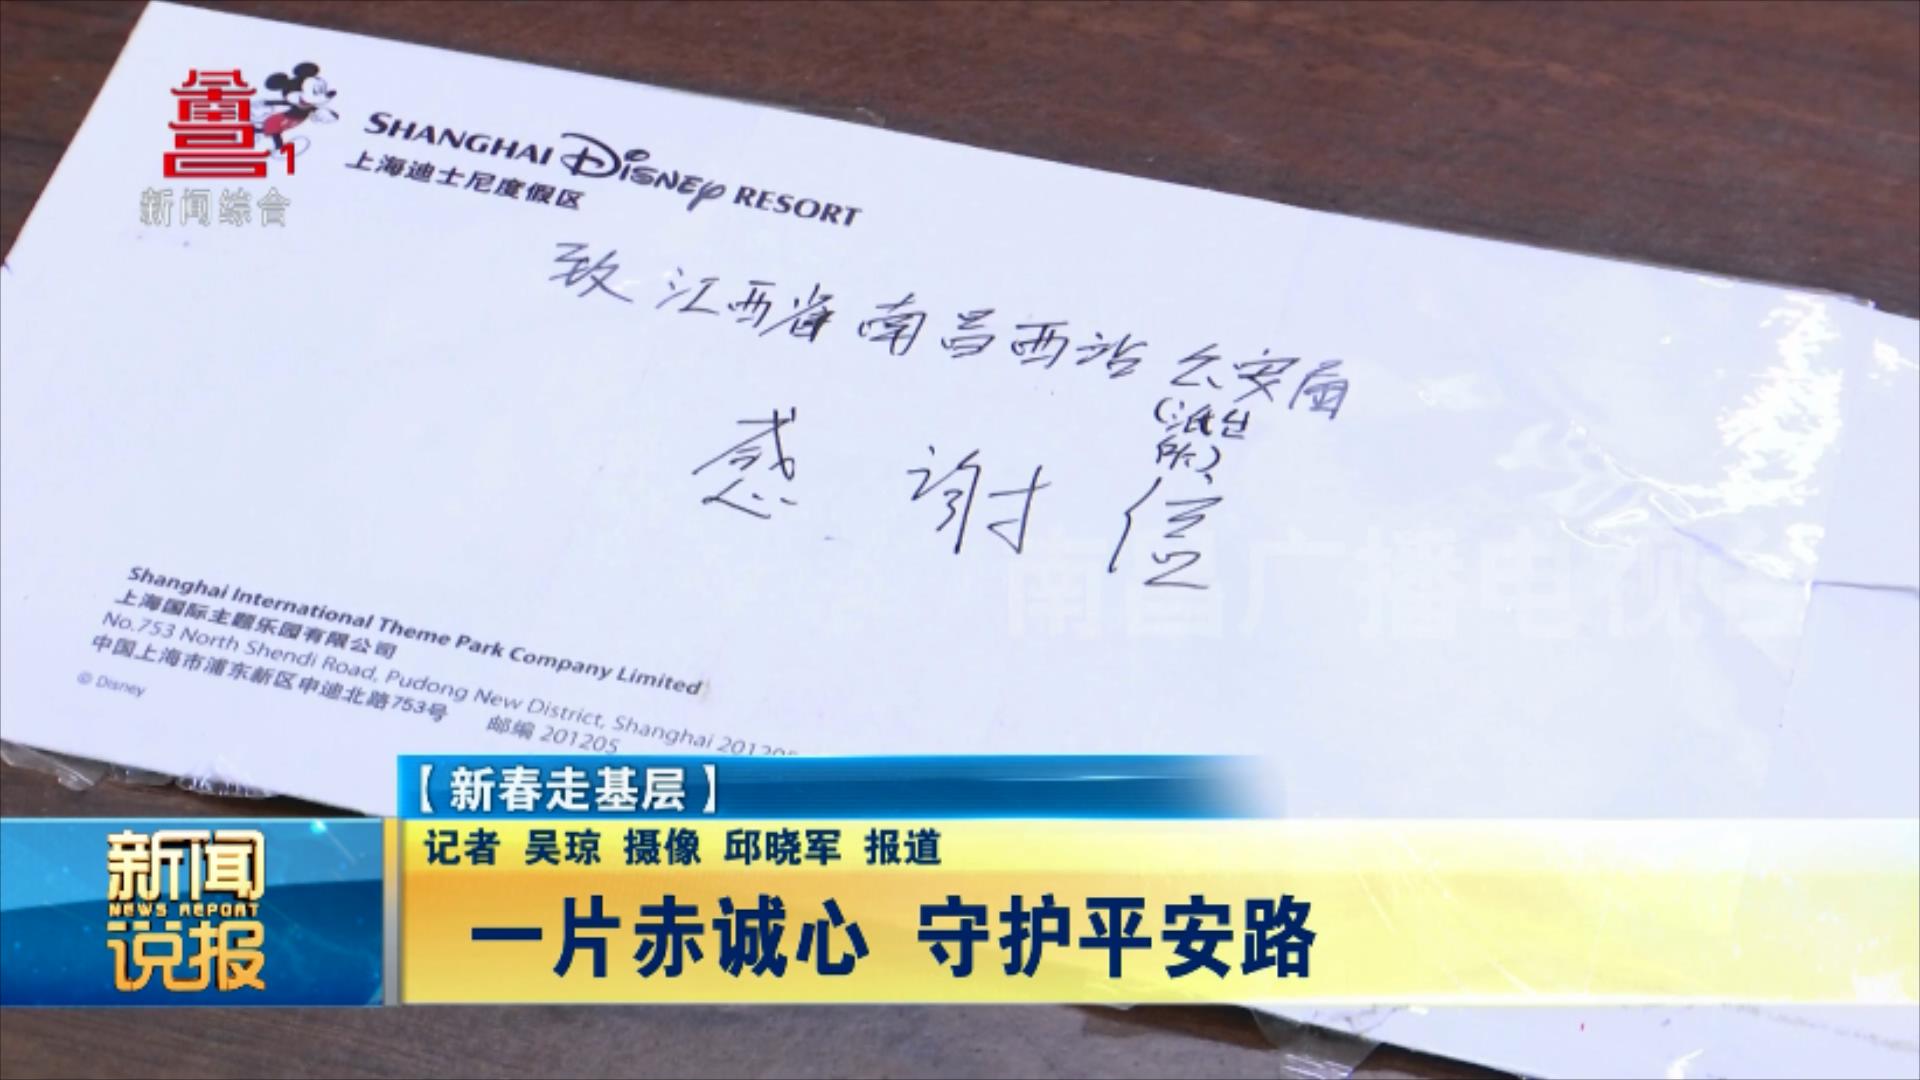 南昌1
新闻综合
SHANGHAI Disney RESORT
上海迪士尼度假区
致 江西省南昌西站公安局
(派出
所)
感谢信
南昌广播电视台
Shanghai International Theme Park Company Limited
上海国际主题乐园有限公司
No.753 North Shendi Road, Pudong New District, Shanghai 201205
中国上海市浦东新区申迪北路753号 邮编 201205
© Disney
【新春走基层】
记者 吴琼 摄像 邱晓军 报道
一片赤诚心 守护平安路
新闻
NEWS REPORT
说报